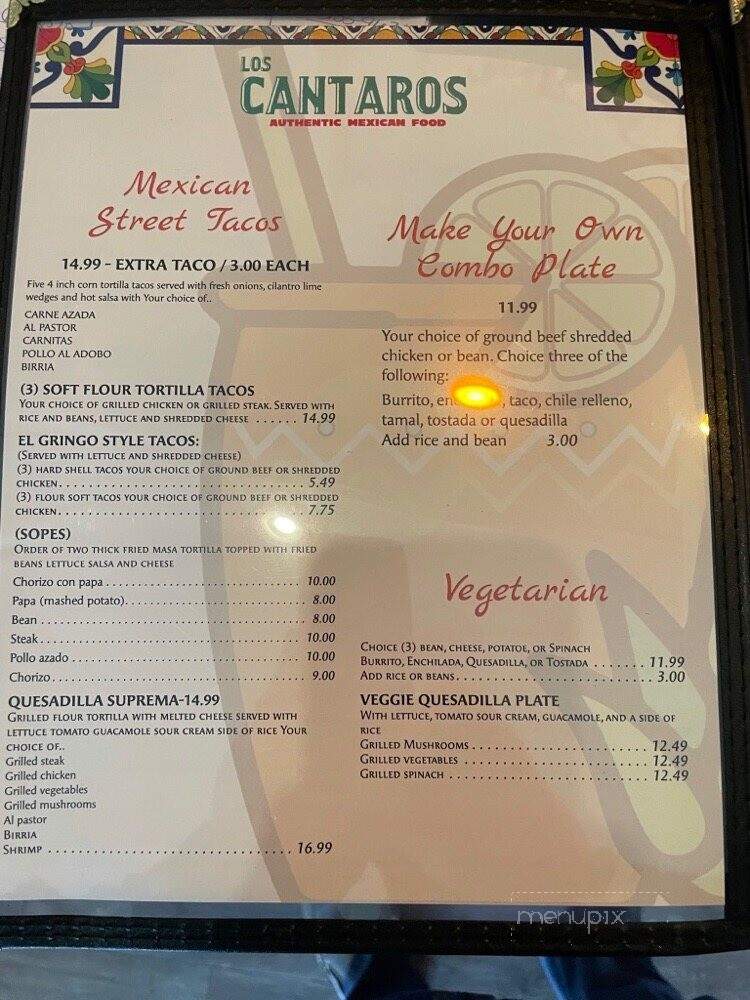 LOS
CANTAROS
AUTHENTIC MEXICAN FOOD
Mexican
Street Tacos
14.99 - EXTRA TACO / 3.00 EACH
Five 4 inch corn tortilla tacos served with fresh onions, cilantro lime
wedges and hot salsa with Your choice of..
CARNE AZADA
AL PASTOR
CARNITAS
POLLO AL ADOBO
BIRRIA
(3) SOFT FLOUR TORTILLA TACOS
YOUR CHOICE OF GRILLED CHICKEN OR GRILLED STEAK. SERVED WITH
RICE AND BEANS, LETTUCE AND SHREDDED CHEESE ...... 14.99
EL GRINGO STYLE TACOS:
(SERVED WITH LETTUCE AND SHREDDED CHEESE)
(3) HARD SHELL TACOS YOUR CHOICE OF GROUND BEEF OR SHREDDED
CHICKEN................................ 5.49
(3) FLOUR SOFT TACOS YOUR CHOICE OF GROUND BEEF OR SHREDDED
CHICKEN................................ 7.75
(SOPES)
ORDER OF TWO THICK FRIED MASA TORTILLA TOPPED WITH FRIED
BEANS LETTUCE SALSA AND CHEESE
Chorizo con papa .......................... 10.00
Papa (mashed potato)........................ 8.00
Bean ................................... 8.00
Steak................................... 10.00
Pollo azado .............................. 10.00
Chorizo................................. 9.00
QUESADILLA SUPREMA-14.99
GRILLED FLOUR TORTILLA WITH MELTED CHEESE SERVED WITH
LETTUCE TOMATO GUACAMOLE SOUR CREAM SIDE OF RICE YOUR
CHOICE OF..
Grilled steak
Grilled chicken
Grilled vegetables
Grilled mushrooms
Al pastor
BIRRIA
SHRIMP ................................ 16.99
Make Your Own
Combo Plate
11.99
Your choice of ground beef shredded
chicken or bean. Choice three of the
following:
Burrito, , taco, chile relleno,
tamal, tostada or quesadilla
Add rice and bean 3.00
Vegetarian
CHOICE (3) BEAN, CHEESE, POTATOE, OR SPINACH
BURRITO, ENCHILADA, QUESADILLA, OR TOSTADA ....... 11.99
ADD RICE OR BEANS............................ 3.00
VEGGIE QUESADILLA PLATE
WITH LETTUCE, TOMATO SOUR CREAM, GUACAMOLE, AND A SIDE OF
RICE
GRILLED MUSHROOMS........................ 12.49
GRILLED VEGETABLES ........................ 12.49
GRILLED SPINACH ........................... 12.49
menupix